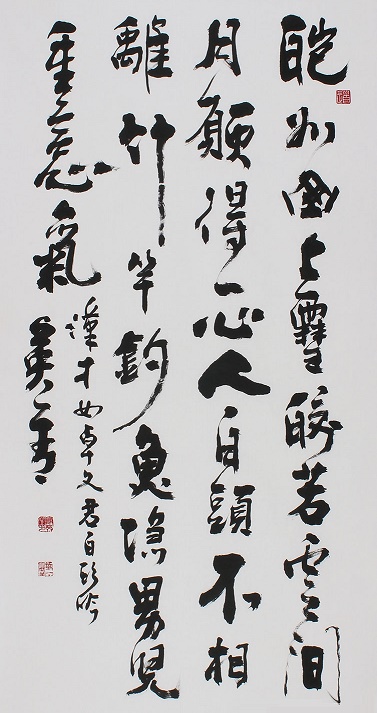 皚如山上雪皎若雲間
月願得一心人白頭不相
離竹竿釣魚隱男兒
重意氣
漢才女卓文君白頭吟